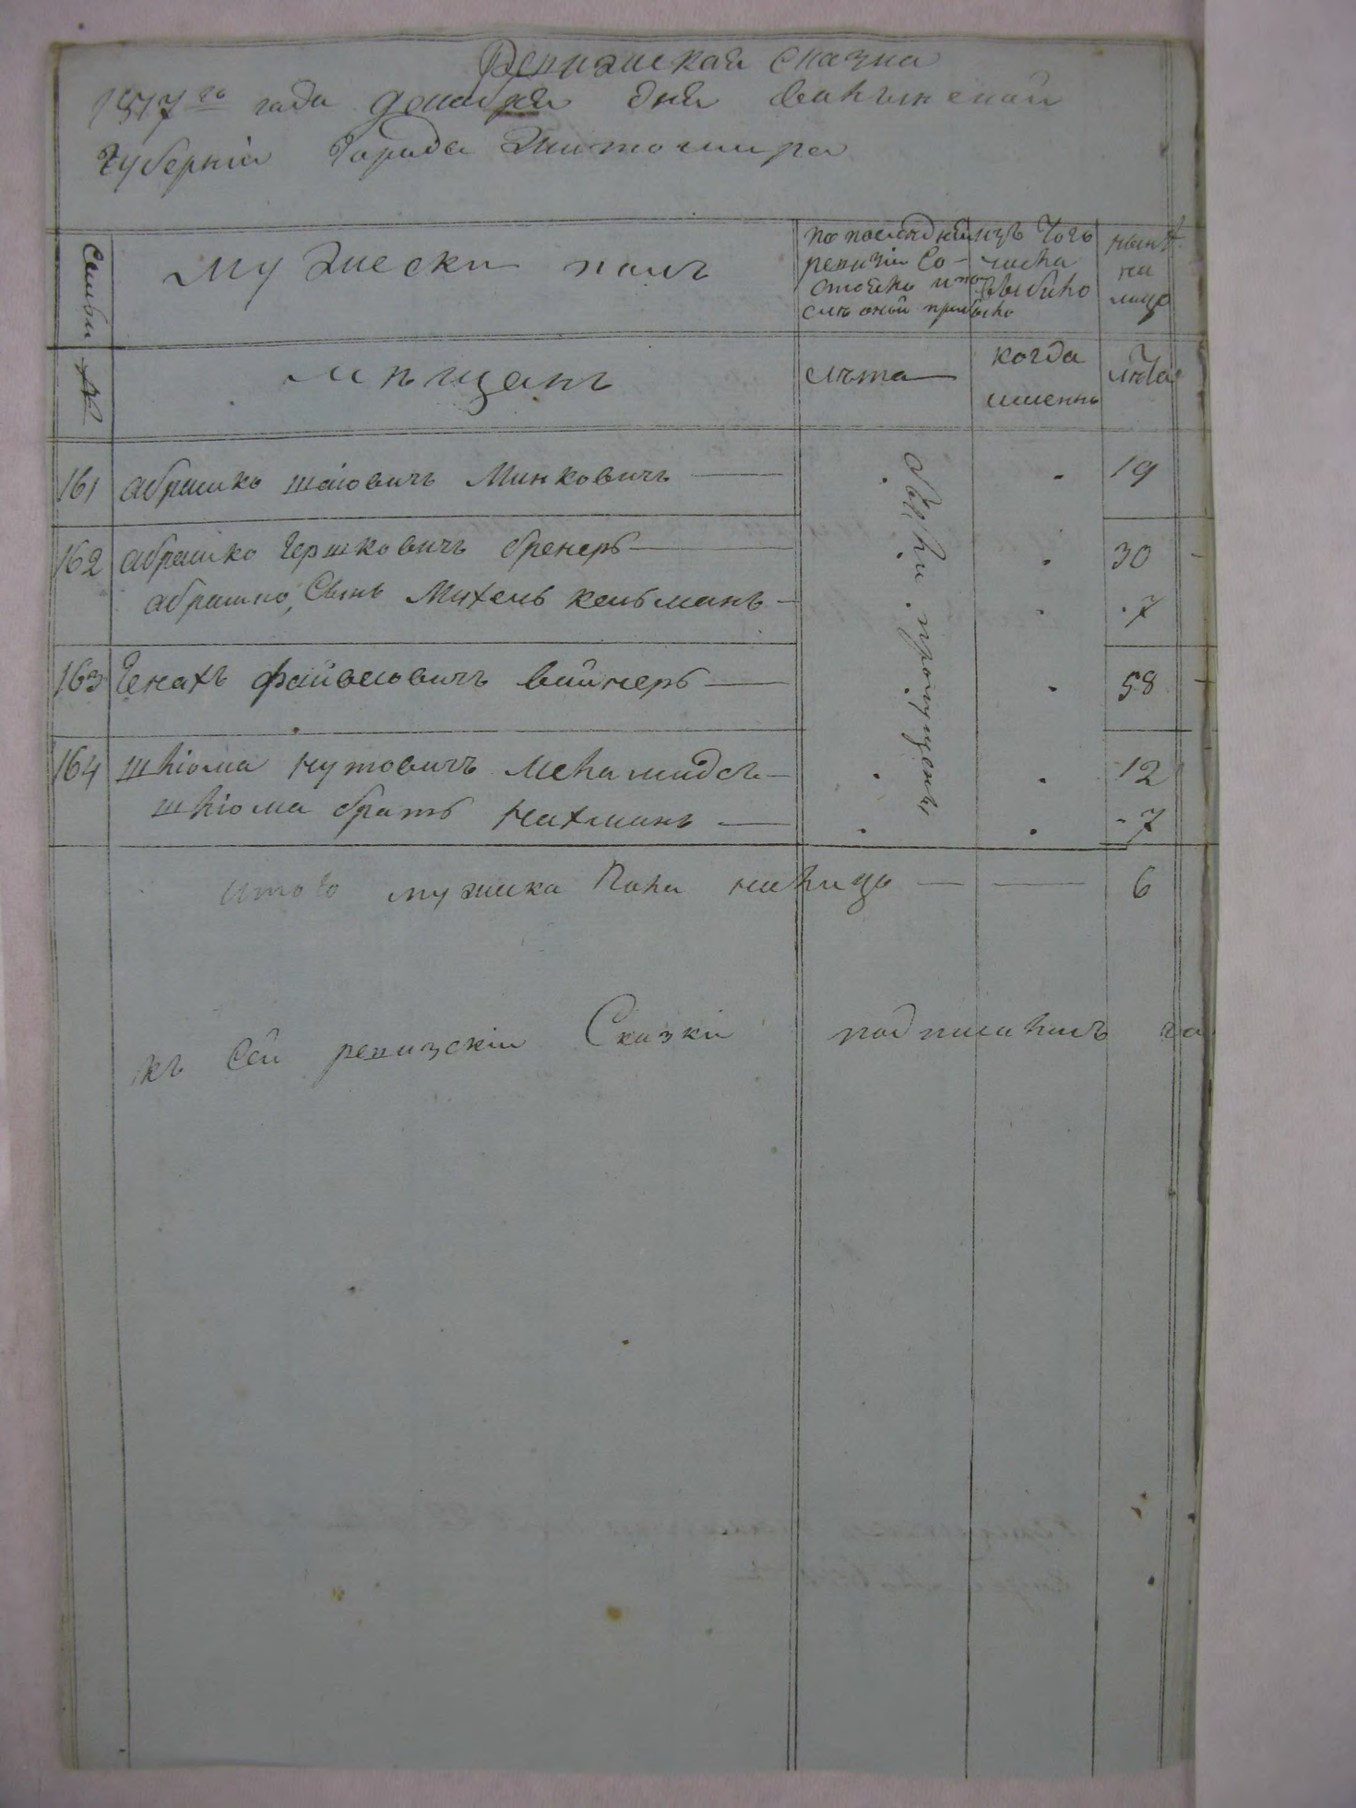 Ревизская сказка
1817го года декабря дня Волынской
Губерніи Города Житомира
Семьи №
Мужески полъ
по последней ревизіи Состояло и после оной прибыло
изъ того числа выбыло
нынѣ на лицо
Мѣщанъ
лѣта
когда именно
лѣта
161 Абрашко Шаіовичъ Минковичъ 19
162 Абрашко Гершковичъ Бренеръ 30
Абрашко, Сынъ Михель Кельманъ 7
163 Генахъ Файвеловичъ Вайнеръ 58
164 Шліома Нутовичъ 12
Шліома братъ Нахманъ 7
Были пропущены
Итого мужска пола налицо 6
Къ Сей ревизскіи Сказкіи подписалъ